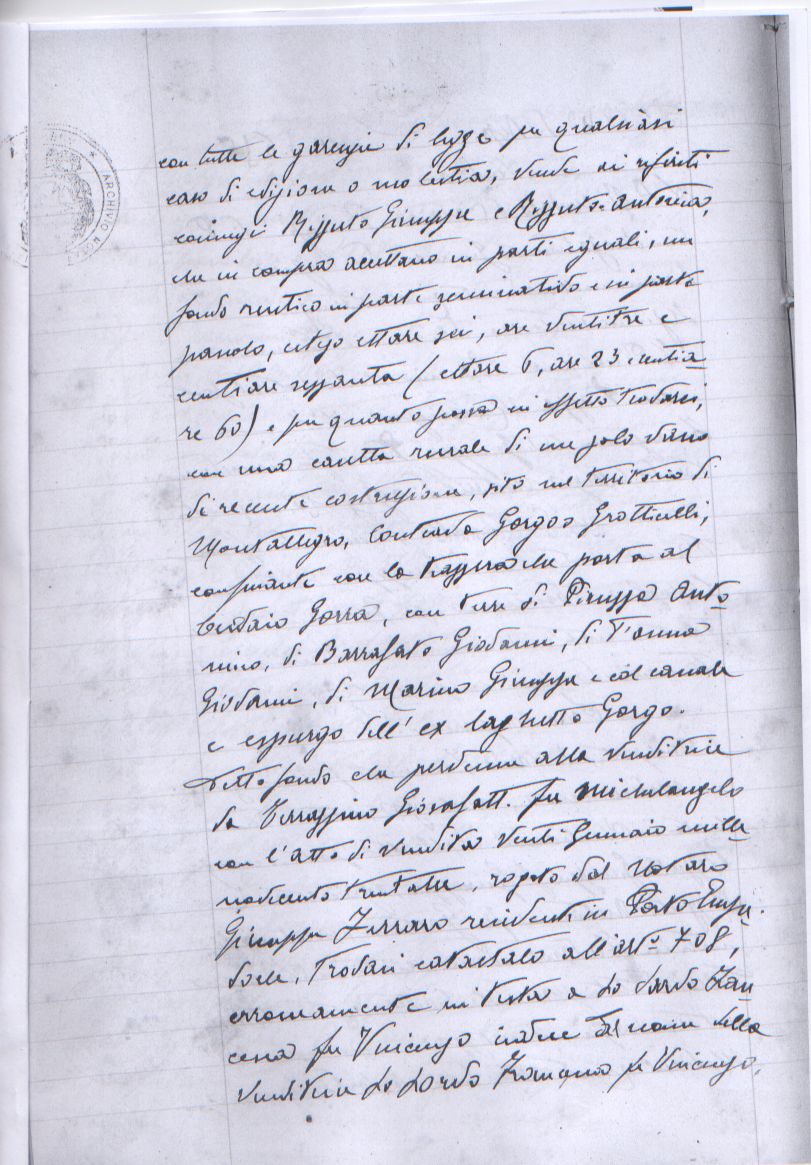 con tutte le garenzie di legge per qualsiasi
caso di evizione o molestia, vende ai riferiti
coniugi Rizzuto Giuseppe e Rizzuto Antonia,
che in compra accettano in parti eguali, un
fondo rustico in parte seminativo e in parte
paludo, esteso ettare sei, are ventitre e
centiare sessanta (ettare 6, are 23 centia-
re 60) e per quanto possa in effetto trovarsi,
con una casetta rurale di un solo vano
di recente costruzione, sito nel territorio di
Montallegro, Contrada Gorgo o Grotticelli,
confinante con la trazzera che porta al
Gorra, con terre di Piruzza Anto-
nino, di Barrafato Giovanni, di
Giovanni, di Marino Giuseppe e col canale
e espurgo dell'ex laghetto Gorgo.
Detto fondo che pervenne alla venditrice
da Terrassino Giosafatt. fu Michelangelo
con l'atto di vendita venti Gennaio mille-
novecento trentatre, rogato dal Notaro
Giuseppe Ferraro residente in Porto Empe-
docle, trovasi catastato all'arto 708,
erroneamente in testa a Lo Sardo Fran-
cesca fu Vincenzo della
venditrice Lo Fu Vincenzo.
ARCHIVIO